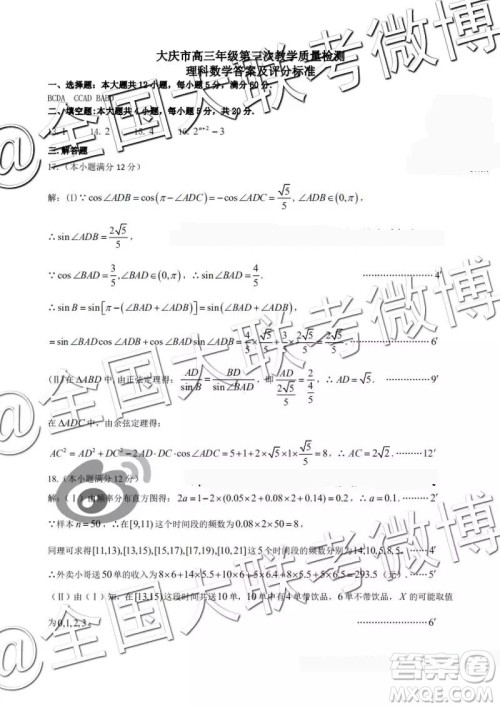 大庆市高三年级第三次教学质量检测
理科数学答案及评分标准
一、选择题：本大题共12小题，每小题5分，满分60分.
BCDA CCAD BABD
二、填空题:本大题共4小题，每小题5分，共20分.
14. 2 15. 4 16. 2^{n+2}−3
三.解答题
17.（本小题满分12分）
解:（I）∵ cos∠ADB = cos(π−∠ADC) = −cos∠ADC = √5/5, ∠ADB∈(0,π),
∴ sin∠ADB = 2√5/5.
∵ cos∠BAD = 3/5, ∠BAD∈(0,π) ∴ sin∠BAD = 4/5. ……………4′
∴ sin B = sin[π−(∠BAD+∠ADB)] = sin(∠BAD+∠ADB)
= sin∠BAD cos∠ADB + cos∠BAD sin∠ADB = 4/5×√5/5+3/5×2√5/5=2√5/5. ………6′
（II）在△ABD中,由正弦定理得: AD/sin B = BD/sin∠BAD, 即 AD/(2√5/5) = 2/(4/5), ∴ AD=√5. ………9′
在△ADC中，由余弦定理得:
AC² = AD² + DC² − 2AD·DC·cos∠ADC = 5+1+2×√5×1×√5/5 = 8, ∴ AC = 2√2. ………12′
18.（本小题满分12分）
解:（I）由频率分布直方图得: 2a = 1−2×(0.05×2+0.08+0.12+0.14), ∴ a=0.1. ……2′
∵ 样本n=50, ∴ 在[9,11)这个时间段的频数为0.08×2×50=8
同理可求得[11,13),[13,15),[15,17),[17,19),[19,21]这5个时间段的频数为14,10,5,8,5. ……4′
∴ 外卖小哥送50单的收入为8×6+14×5.5+10×6+5×5.5+8×5.5+5×5=293.5（元）.
（II）由（I）知，在[13,15)共送10单，其中有4单带饮品，6单不带饮品，X的可能取值
为0,1,2,3. ………6′
@全国大联考微博
@全国大联考微博
@全国大联考微博
答案圈
MXQE.COM